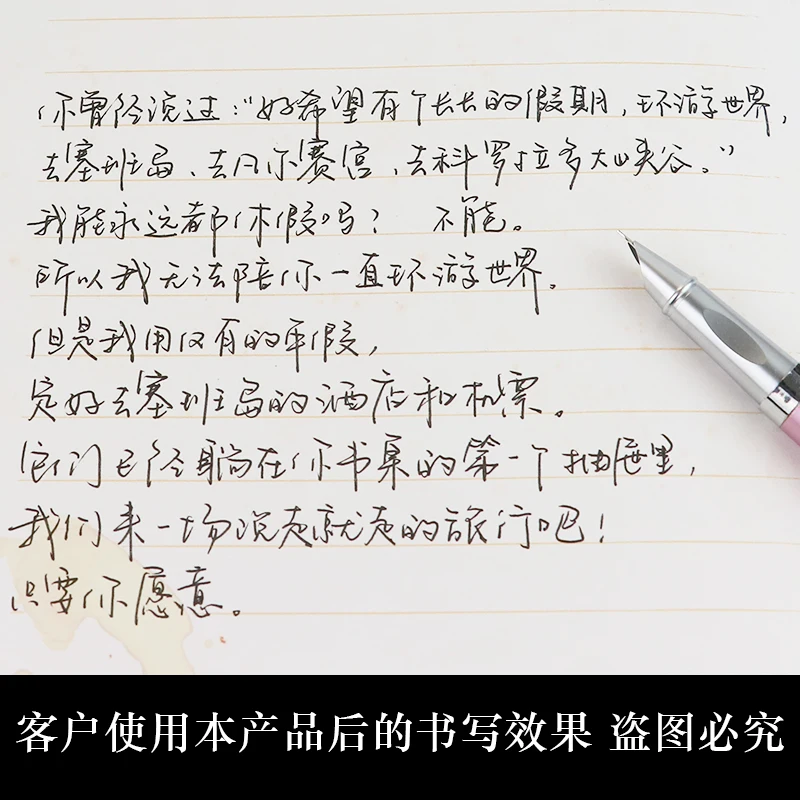 你曾经说过:"好希望有个长长的假期,环游世界,
去塞班岛、去凡尔赛宫、去科罗拉多大峡谷。"
我能永远都休假吗? 不能。
所以我无法陪你一直环游世界。
但是我用仅有的年假,
定好去塞班岛的酒店和机票。
它们已经躺在你书桌的第一个抽屉里,
我们来一场说走就走的旅行吧!
只要你愿意。
客户使用本产品后的书写效果 盗图必究